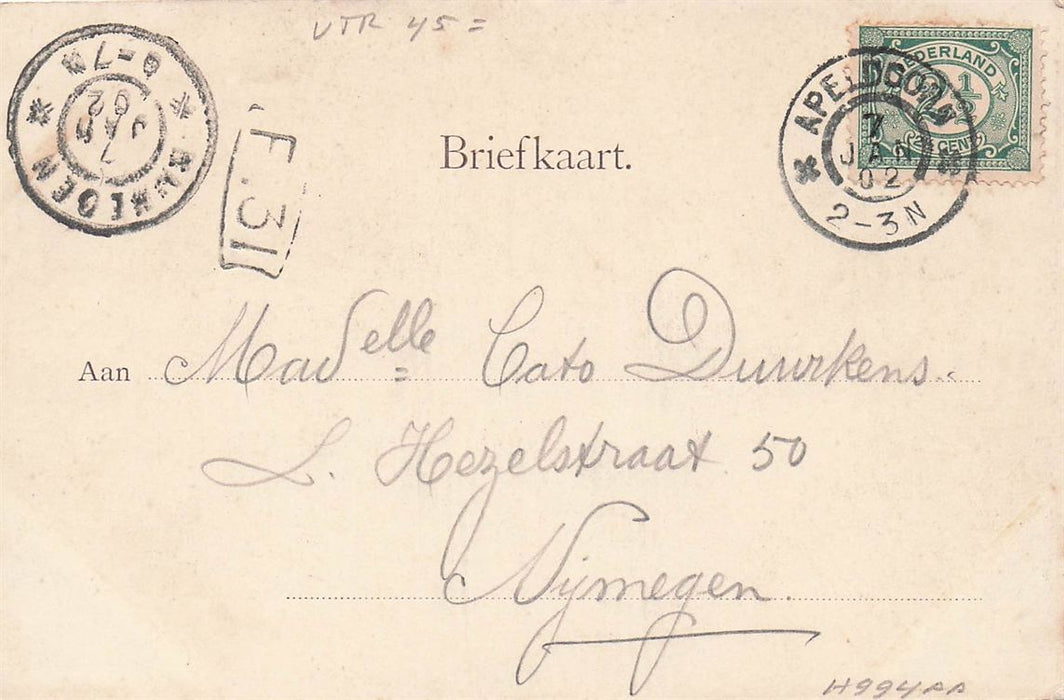 VTR 45=
NEDERLAND
2½
2½ CENT
APELDOORN
7
JAN
02
2-3N
NIJMEGEN
7
JAN
02
6-7N
F.31
Briefkaart.
Aan Madelle Cato Duurkens.
L. Hezelstraat 50
Nymegen.
H994AA